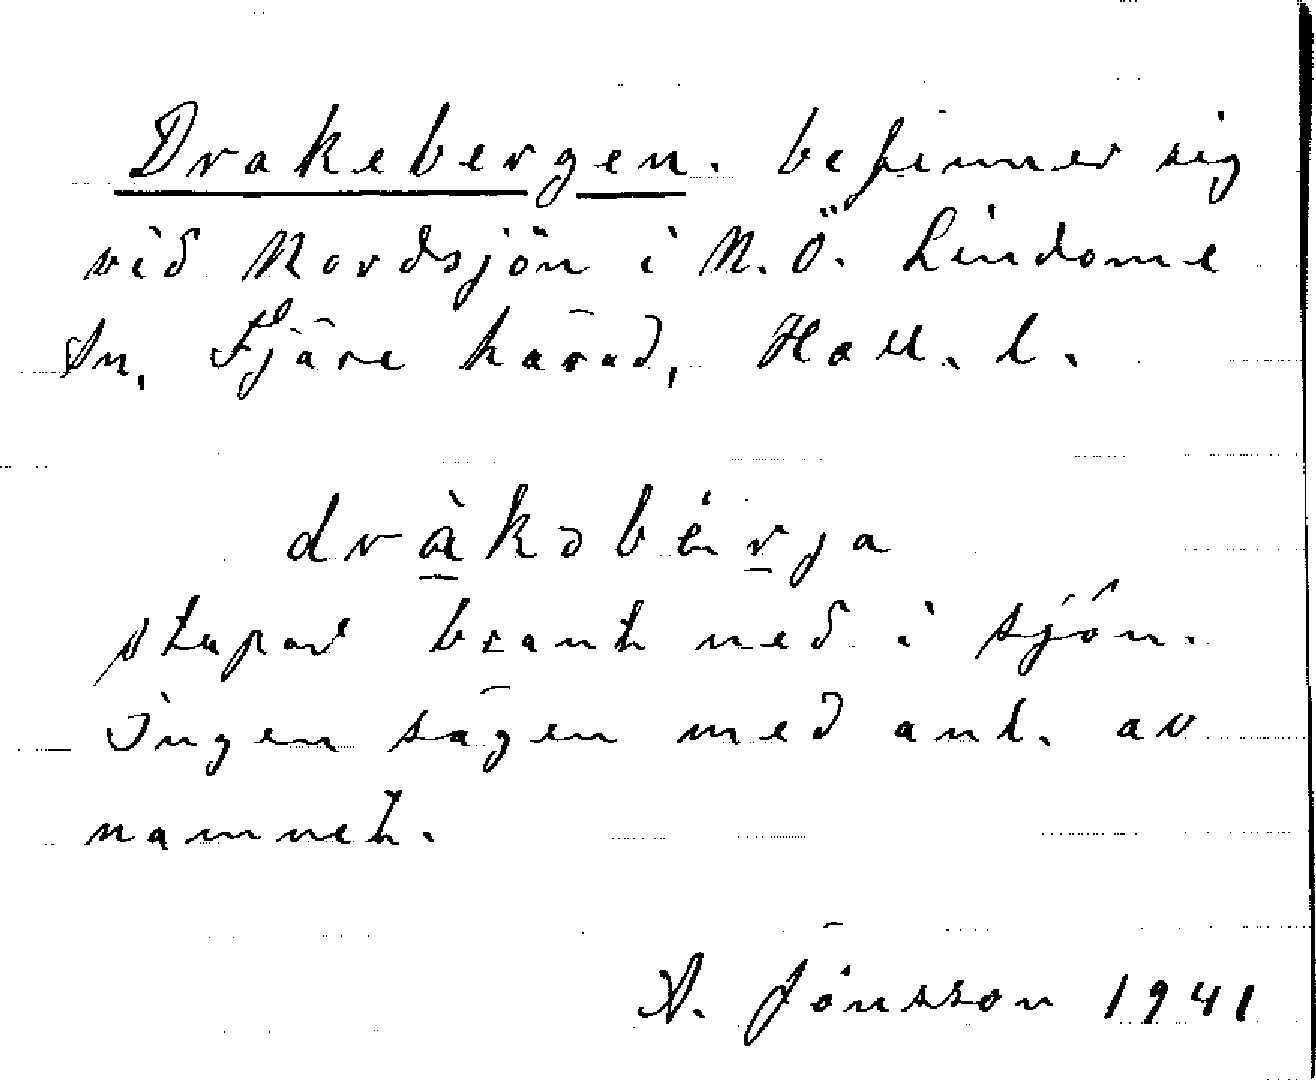 Drakebergen. befinner sig
vid Nordsjön i N.Ö. Lindome
sn, Fjäre härad, Hall. l.
dràkəbérja
stupar brant ned i sjön.
Ingen sägen med anl. av
namnet.
A. Jönsson 1941